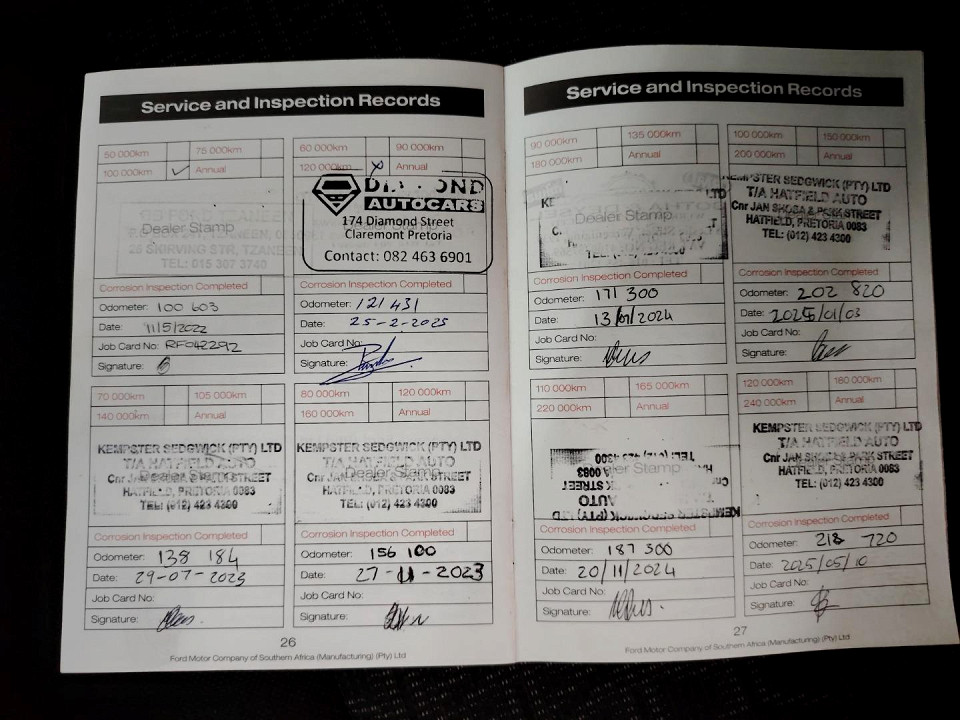 Service and Inspection Records
50 000km 75 000km
100 000km ✓ Annual
Dealer Stamp
TEL: 015 307 3740
Corrosion Inspection Completed
Odometer: 100 603
Date: 11/5/2022
Job Card No: RF042292
Signature:
60 000km 90 000km
120 000km x Annual
DIAMOND
AUTOCARS
174 Diamond Street
Claremont Pretoria
Contact: 082 463 6901
Corrosion Inspection Completed
Odometer: 121 431
Date: 25-2-2023
Job Card No:
Signature:
70 000km 105 000km
140 000km Annual
KEMPSTER SEDGWICK (PTY) LTD
T/A HATFIELD AUTO
Dealer Stamp
Cnr JAN SHOBA & PARK STREET
HATFIELD, PRETORIA 0083
TEL: (012) 423 4300
Corrosion Inspection Completed
Odometer: 138 184
Date: 29-07-2023
Job Card No:
Signature:
80 000km 120 000km
160 000km Annual
KEMPSTER SEDGWICK (PTY) LTD
T/A HATFIELD AUTO
Dealer Stamp
Cnr JAN SHOBA & PARK STREET
HATFIELD, PRETORIA 0083
TEL: (012) 423 4300
Corrosion Inspection Completed
Odometer: 156 100
Date: 27-11-2023
Job Card No:
Signature:
26
Ford Motor Company of Southern Africa (Manufacturing) (Pty) Ltd
Service and Inspection Records
90 000km 135 000km
180 000km Annual
KE LTD
Dealer Stamp
Corrosion Inspection Completed
Odometer: 171 300
Date: 2024
Job Card No:
Signature:
100 000km 150 000km
200 000km Annual
KEMPSTER SEDGWICK (PTY) LTD
T/A HATFIELD AUTO
Cnr JAN SHOBA & PARK STREET
HATFIELD, PRETORIA 0083
TEL: (012) 423 4300
Corrosion Inspection Completed
Odometer: 202 820
Date: 2025/01/03
Job Card No:
Signature:
110 000km 165 000km
220 000km Annual
TEL: (012) 423 4300
Dealer Stamp
0083
STREET
AUTO
KEMPSTER SEDGWICK (PTY) LTD
Corrosion Inspection Completed
Odometer: 187 300
Date: 20/11/2024
Job Card No:
Signature:
120 000km 180 000km
240 000km Annual
KEMPSTER SEDGWICK (PTY) LTD
T/A HATFIELD AUTO
Cnr JAN SHOBA & PARK STREET
HATFIELD, PRETORIA 0083
TEL: (012) 423 4300
Corrosion Inspection Completed
Odometer: 218 720
Date: 2025/05/10
Job Card No:
Signature:
27
Ford Motor Company of Southern Africa (Manufacturing) (Pty) Ltd